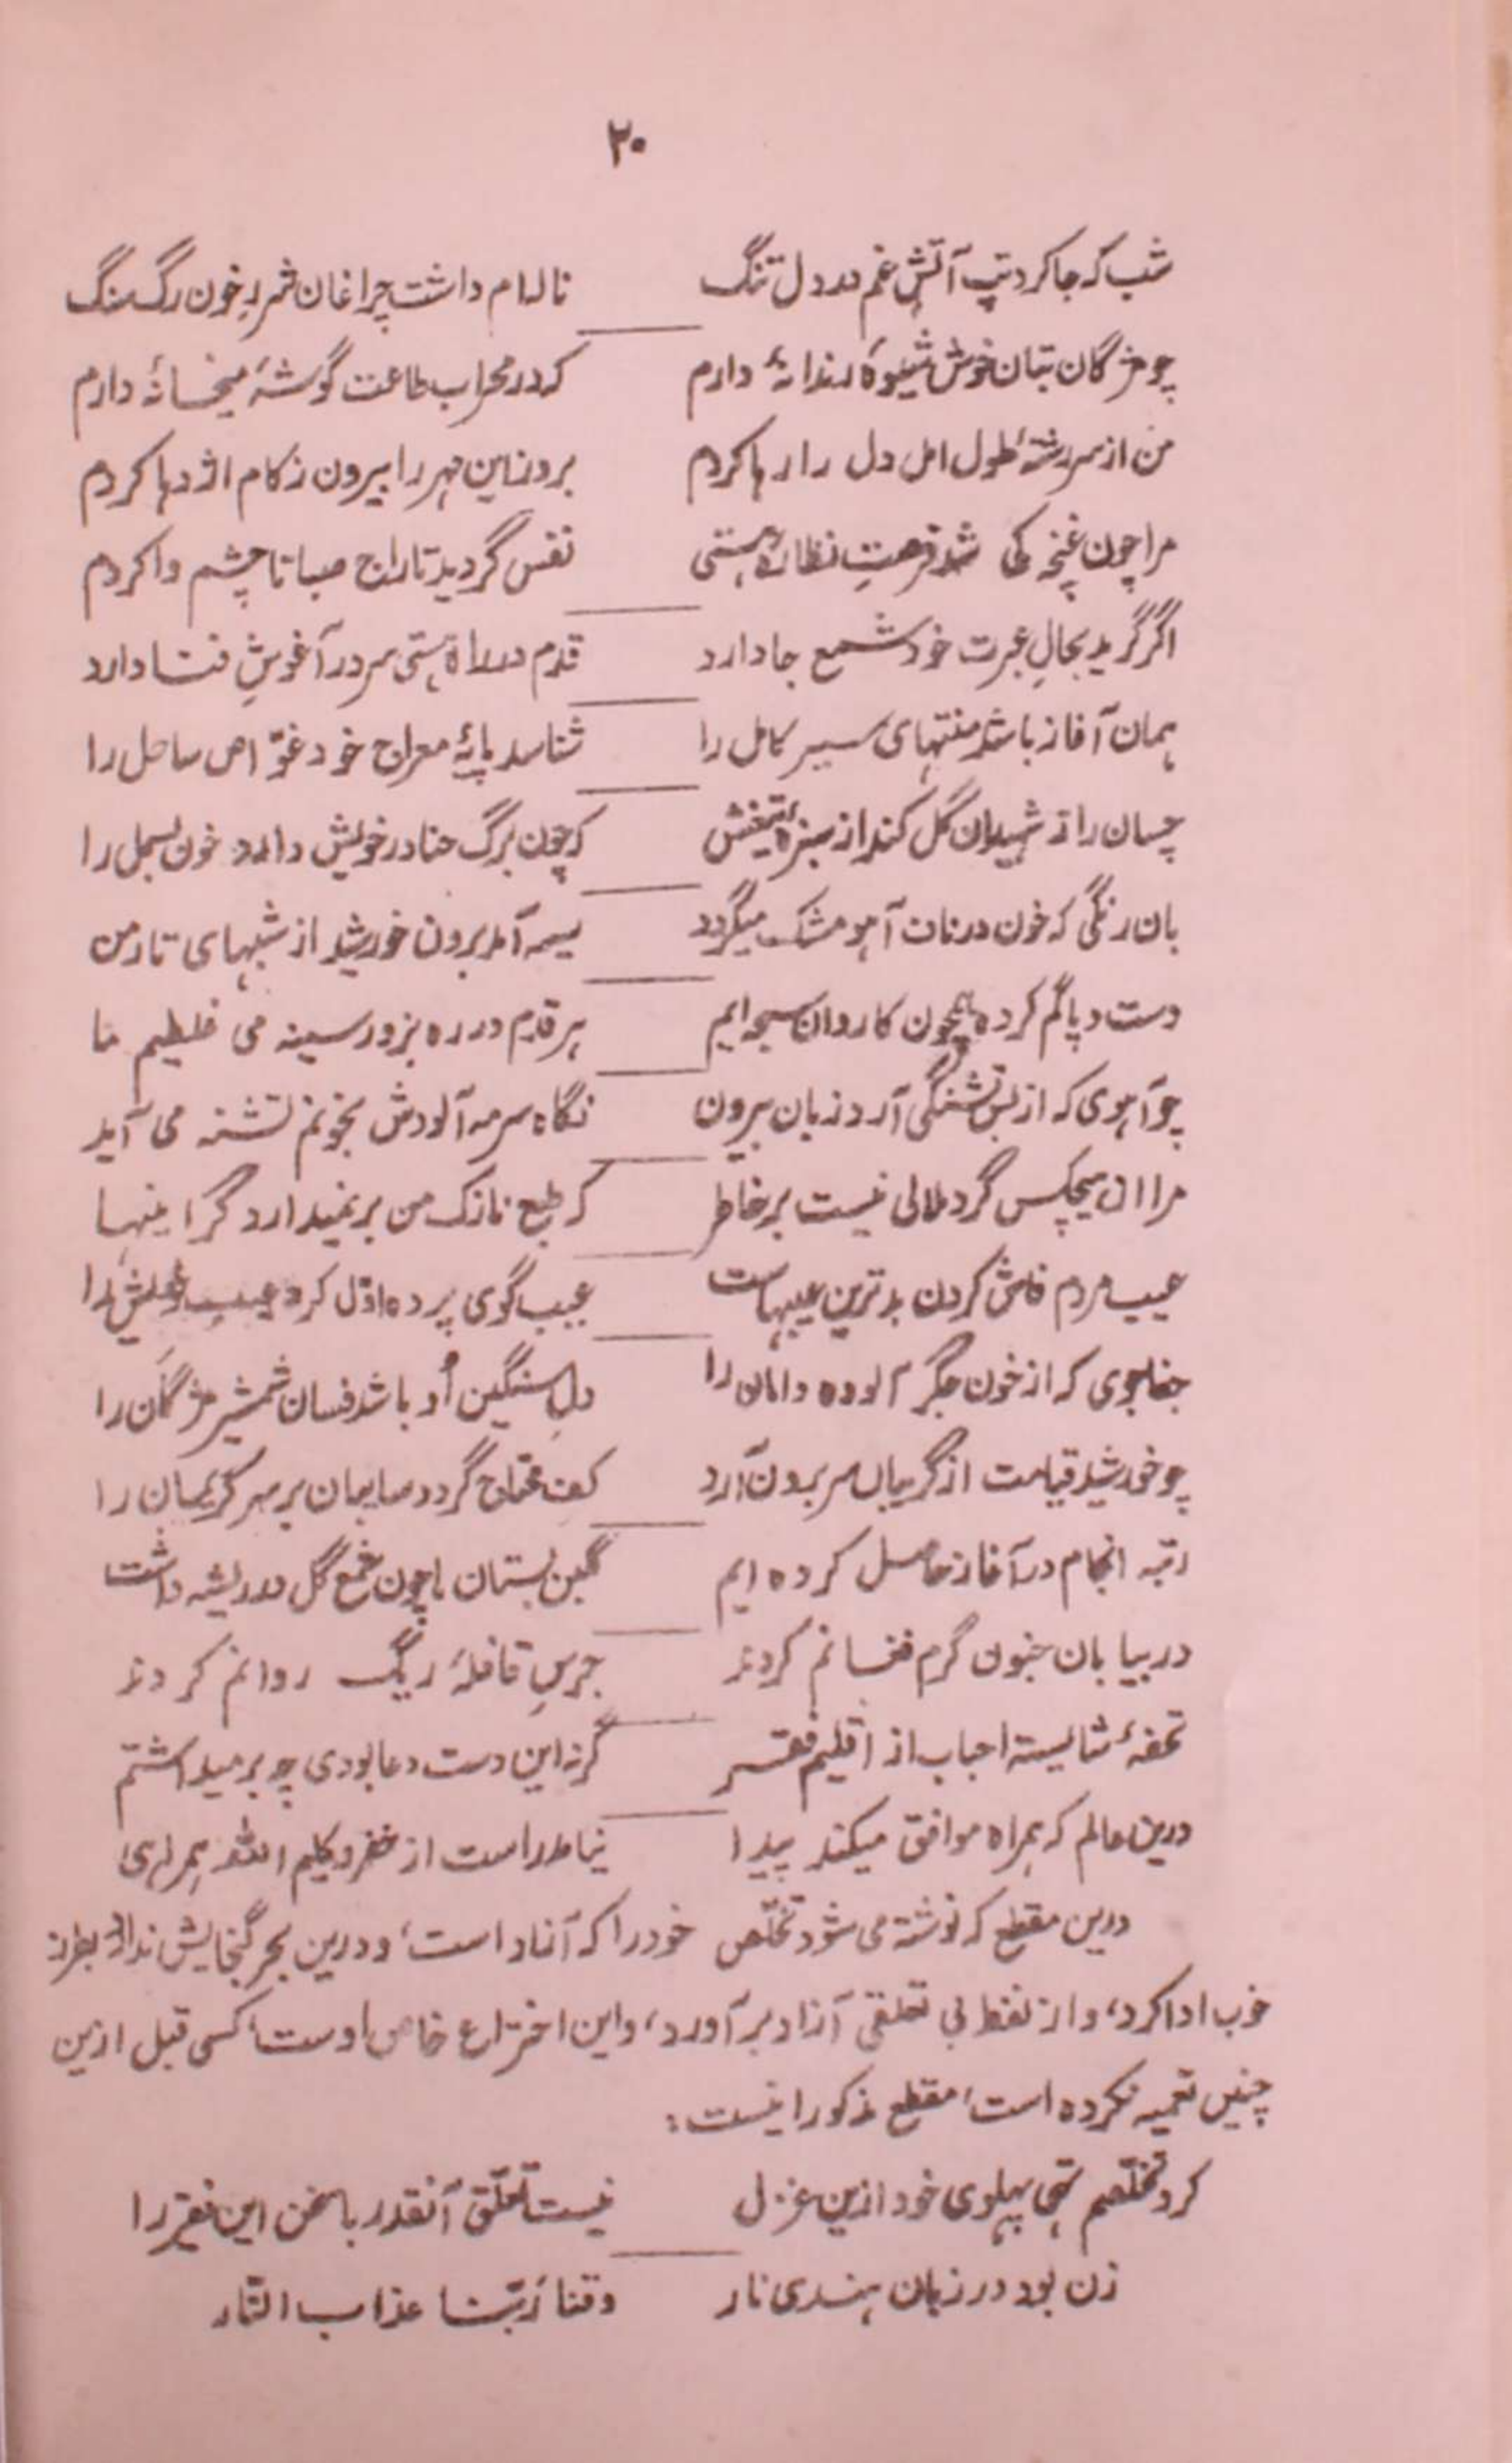 ۲۰
شب که جا کرد تپ آتشِ غم در دل تنگ نالہ ام داشت چراغان شررِ خون رگ سنگ
چو مژگان بتان خوش شیوهٔ رندانهٔ دارم که در محراب طاعت گوشۂ میخانۂ دارم
من از سررشتهٔ طول امل دل را رها کردم بروز این مهره را بیرون ز کام اژدها کردم
مرا چون غنچه طی شد فرصتِ نظارهٔ هستی نفس گردید تاراج صبا تا چشم وا کردم
اگر گرید بحالِ عبرت خود شمع جا دارد قدم در راه هستی سر در آغوشِ فنا دارد
همان آغاز باشد منتهای سیر کامل را شناسد پایهٔ معراج خود غوّاص ساحل را
چسان راز شهیدان گل کند از سبزهٔ تیغش که چون برگ حنا در خویش دارد خون بسمل را
بان رنگی که خون در ناف آهو مشک میگردد سیه آمد برون خورشید از شبهای تار من
دست و پا گم کرده همچون کاروان سبحه ایم هر قدم در ره بزور سینه می غلطیم ما
چو آهوی که از بس تشنگی آرد زبان بیرون نگاه سرمه آلودش بخونم تشنه می آید
مرا از هیچکس گرد ملالی نیست بر خاطر که طبع نازک من بر نمیدارد گرانیها
عیب مردم فاش کردن بدترین عیبهاست عیب گوی پرده اوّل کرد عیبِ خویش را
جفاجوی که از خون جگر آلوده دامان را دلِ سنگین اُو باشد فسان شمشیر مژگان را
چو خورشید قیامت از گریبان سر برون آرد کف محتاج گردد سایبان بر سر کریمان را
رتبه انجام در آغاز حاصل کرده ایم گلبن بستان ما چون شمع گل در ریشه داشت
در بیابان جنون گرم فغانم کردند جرسِ قافلهٔ ریگ روانم کردند
تحفهٔ شایسته احباب از اقلیم فقر گر نه این دست دعا بودی چه برمیداشتم
درین عالم که همراه موافق میکند پیدا نیامد راست از خضر و کلیم الله همراهی
درین مقطع که نوشته می شود تخلّص خود را که آزاد است، و درین بحر گنجایش ندارد بطرز
خوب ادا کرد، و از لفظ بی تعلقی آزاد بر آورد، و این اختراع خاص اوست، کسی قبل ازین
چنین تعمیه نکرده است، مقطع مذکور اینست:
کرد تخلّصم تهی پهلوی خود ازین غزل نیست تعلّق آنقدر با سخن این فقیر را
زن بود در زبان هندی نار وقنا رَبّنا عذاب النّار